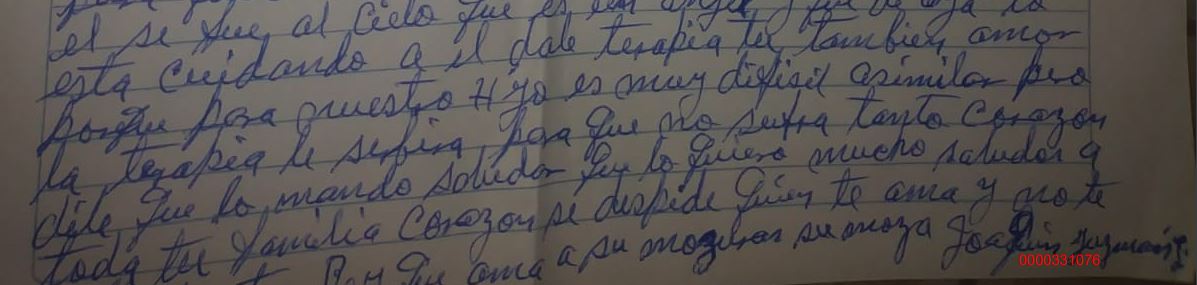 el se fue al cielo que es un angel y que de aya lo
esta cuidando a el dale terapia tu tambien amor
porque para nuestro Hijo es muy dificil asimilar pero
la terapia le serbira para que no sufra tanto Corazon
dile que lo mando saludar que lo quiero mucho saludar a
toda tu familia Corazon se despide quien te ama y no te
Por que ama a su su moza Joaquin Guzman
0000331076